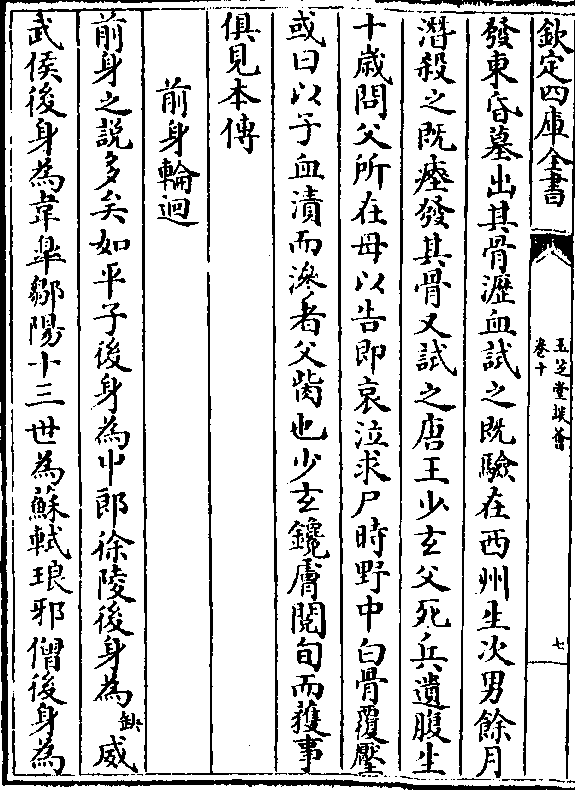 欽定四庫全書
玉芝堂談薈
卷十
七
發東昏墓出其骨瀝血試之既驗在西州生次男餘月
潛殺之既瘞發其骨又試之唐王少玄父死兵遺腹生
十歲問父所在母以告即哀泣求尸時野中白骨覆壓
或曰以子血漬而滲者父胔也少玄鑱膚閱旬而獲事
俱見本傳
前身輪迴
前身之説多矣如平子後身為中郎徐陵後身為缺威
武侯後身為韋臯鄒陽十三世為蘇軾琅邪僧後身為